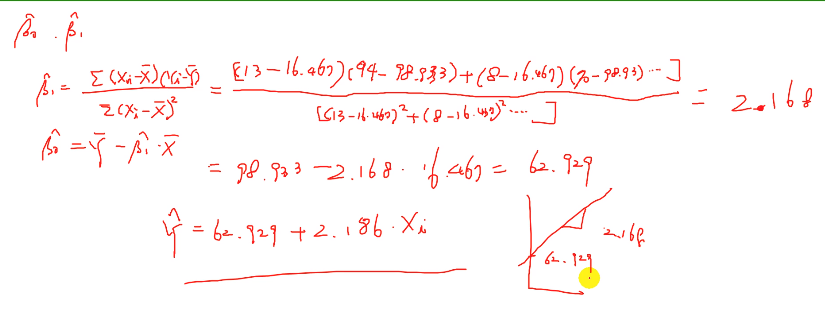 β̂₀ . β̂₁
β̂₁ = Σ(Xi-X̄)(Yi-Ȳ) / Σ(Xi-X̄)² = [(13-16.467)(94-98.933)+(8-16.467)(70-98.93)...] / [(13-16.467)²+(8-16.467)².....] = 2.168
β̂₀ = Ȳ - β̂₁·X̄
= 98.933 - 2.168 · 16.467 = 62.929
Ŷ = 62.929 + 2.186 · Xi
2.168
62.929